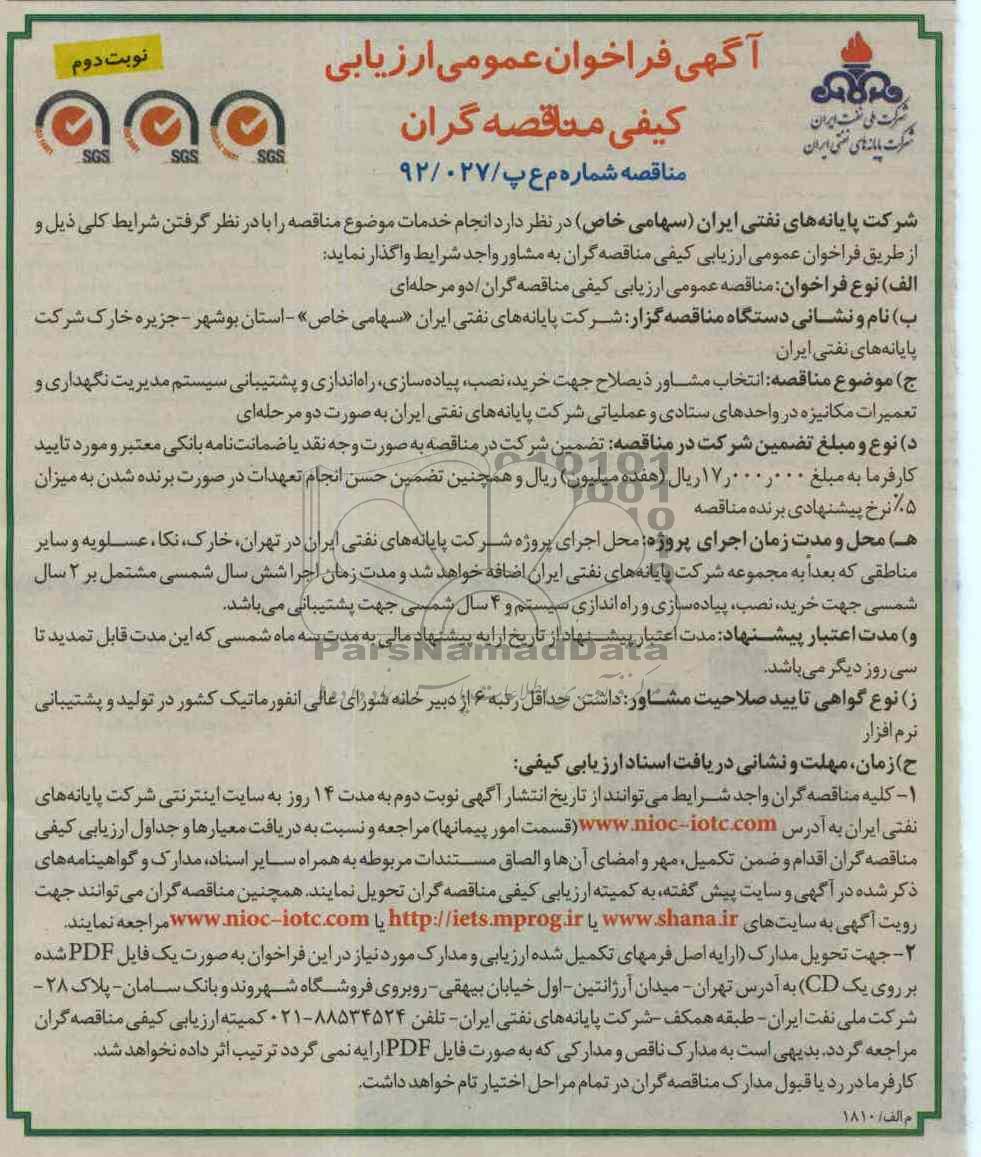 نوبت دوم
آگهی فراخوان عمومی ارزیابی
کیفی مناقصه گران
مناقصه شماره م ع پ/۹۲/۰۲۷
شرکت ملی نفت ایران
شرکت پایانه‌های نفتی ایران
SGS SGS SGS
شرکت پایانه‌های نفتی ایران (سهامی خاص) در نظر دارد انجام خدمات موضوع مناقصه را با در نظر گرفتن شرایط کلی ذیل و
از طریق فراخوان عمومی ارزیابی کیفی مناقصه گران به مشاور واجد شرایط واگذار نماید:
الف) نوع فراخوان: مناقصه عمومی ارزیابی کیفی مناقصه گران/دو مرحله‌ای
ب) نام و نشانی دستگاه مناقصه گزار: شرکت پایانه‌های نفتی ایران «سهامی خاص» -استان بوشهر -جزیره خارک شرکت
پایانه‌های نفتی ایران
ج) موضوع مناقصه: انتخاب مشاور ذیصلاح جهت خرید، نصب، پیاده‌سازی، راه‌اندازی و پشتیبانی سیستم مدیریت نگهداری و
تعمیرات مکانیزه در واحدهای ستادی و عملیاتی شرکت پایانه‌های نفتی ایران به صورت دو مرحله‌ای
د) نوع و مبلغ تضمین شرکت در مناقصه: تضمین شرکت در مناقصه به صورت وجه نقد یا ضمانت‌نامه بانکی معتبر و مورد تایید
کارفرما به مبلغ ۱۷٫۰۰۰٫۰۰۰ ریال (هفده میلیون) ریال و همچنین تضمین حسن انجام تعهدات در صورت برنده شدن به میزان
۵٪ نرخ پیشنهادی برنده مناقصه
هـ) محل و مدت زمان اجرای پروژه: محل اجرای پروژه شرکت پایانه‌های نفتی ایران در تهران، خارک، نکا، عسلویه و سایر
مناطقی که بعداً به مجموعه شرکت پایانه‌های نفتی ایران اضافه خواهد شد و مدت زمان اجرا شش سال شمسی مشتمل بر ۲ سال
شمسی جهت خرید، نصب، پیاده‌سازی و راه اندازی سیستم و ۴ سال شمسی جهت پشتیبانی می‌باشد.
و) مدت اعتبار پیشنهاد: مدت اعتبار پیشنهاد از تاریخ ارایه پیشنهاد مالی به مدت سه ماه شمسی که این مدت قابل تمدید تا
سی روز دیگر می‌باشد.
ParsNamadData
ز) نوع گواهی تایید صلاحیت مشاور: داشتن حداقل رتبه ۶ از دبیر خانه شورای عالی انفورماتیک کشور در تولید و پشتیبانی
نرم افزار
ح) زمان، مهلت و نشانی دریافت اسناد ارزیابی کیفی:
۱- کلیه مناقصه گران واجد شرایط می‌توانند از تاریخ انتشار آگهی نوبت دوم به مدت ۱۴ روز به سایت اینترنتی شرکت پایانه‌های
نفتی ایران به آدرس www.nioc-iotc.com (قسمت امور پیمانها) مراجعه و نسبت به دریافت معیارها و جداول ارزیابی کیفی
مناقصه گران اقدام و ضمن تکمیل، مهر و امضای آن‌ها و الصاق مستندات مربوطه به همراه سایر اسناد، مدارک و گواهینامه‌های
ذکر شده در آگهی و سایت پیش گفته، به کمیته ارزیابی کیفی مناقصه گران تحویل نمایند. همچنین مناقصه گران می توانند جهت
رویت آگهی به سایت‌های www.shana.ir یا http://iets.mprog.ir یا www.nioc-iotc.com مراجعه نمایند.
۲- جهت تحویل مدارک (ارایه اصل فرمهای تکمیل شده ارزیابی و مدارک مورد نیاز در این فراخوان به صورت یک فایل PDF شده
بر روی یک CD) به آدرس تهران- میدان آرژانتین- اول خیابان بیهقی- روبروی فروشگاه شهروند و بانک سامان- پلاک ۲۸-
شرکت ملی نفت ایران- طبقه همکف- شرکت پایانه‌های نفتی ایران- تلفن ۸۸۵۳۴۵۲۴-۰۲۱ کمیته ارزیابی کیفی مناقصه گران
مراجعه گردد. بدیهی است به مدارک ناقص و مدارکی که به صورت فایل PDF ارایه نمی گردد ترتیب اثر داده نخواهد شد.
کارفرما در رد یا قبول مدارک مناقصه گران در تمام مراحل اختیار تام خواهد داشت.
م الف/ ۱۸۱۰